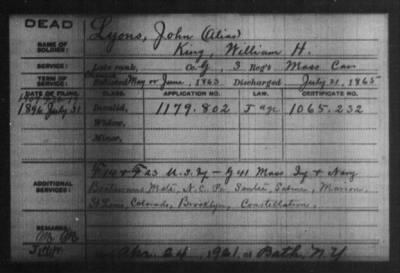 DEAD
Lyons, John (Alias)
NAME OF SOLDIER:
King, William H.
SERVICE:
Late rank, Co. G, 3 Reg't Mass Cav
TERM OF SERVICE:
Enlisted May or June, 1863 Discharged July 21, 1865
DATE OF FILING. CLASS. APPLICATION NO. LAW. CERTIFICATE NO.
1896 July 31 Invalid, 1179.802 J age 1065.232
Widow,
Minor,
ADDITIONAL SERVICES:
F 14 & F 23 U.S. Iy - G 41 Mass Iy & Navy
Boatswains Mate, N.C. Pa. Santee, Sabine, Marion,
St Louis, Colorado, Brooklyn, Constellation.
REMARKS:
24, 1921, at Bath, N.Y